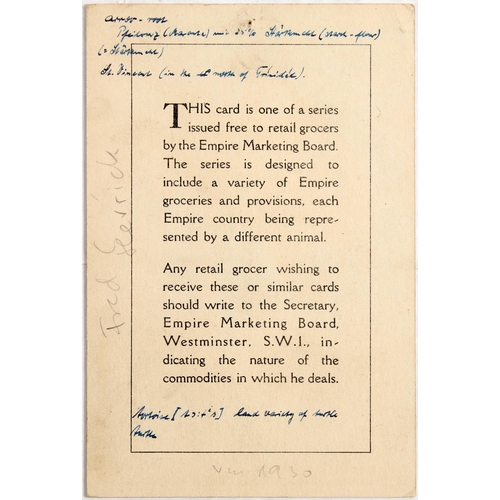 arrow-root
(= Stärkemehl)
St. Vincent (in the north of Trinidad).
THIS card is one of a series
issued free to retail grocers
by the Empire Marketing Board.
The series is designed to
include a variety of Empire
groceries and provisions, each
Empire country being repre-
sented by a different animal.
Any retail grocer wishing to
receive these or similar cards
should write to the Secretary,
Empire Marketing Board,
Westminster, S.W.1., in-
dicating the nature of the
commodities in which he deals.
land variety of turtle
turtle
1930
Fred Herrick